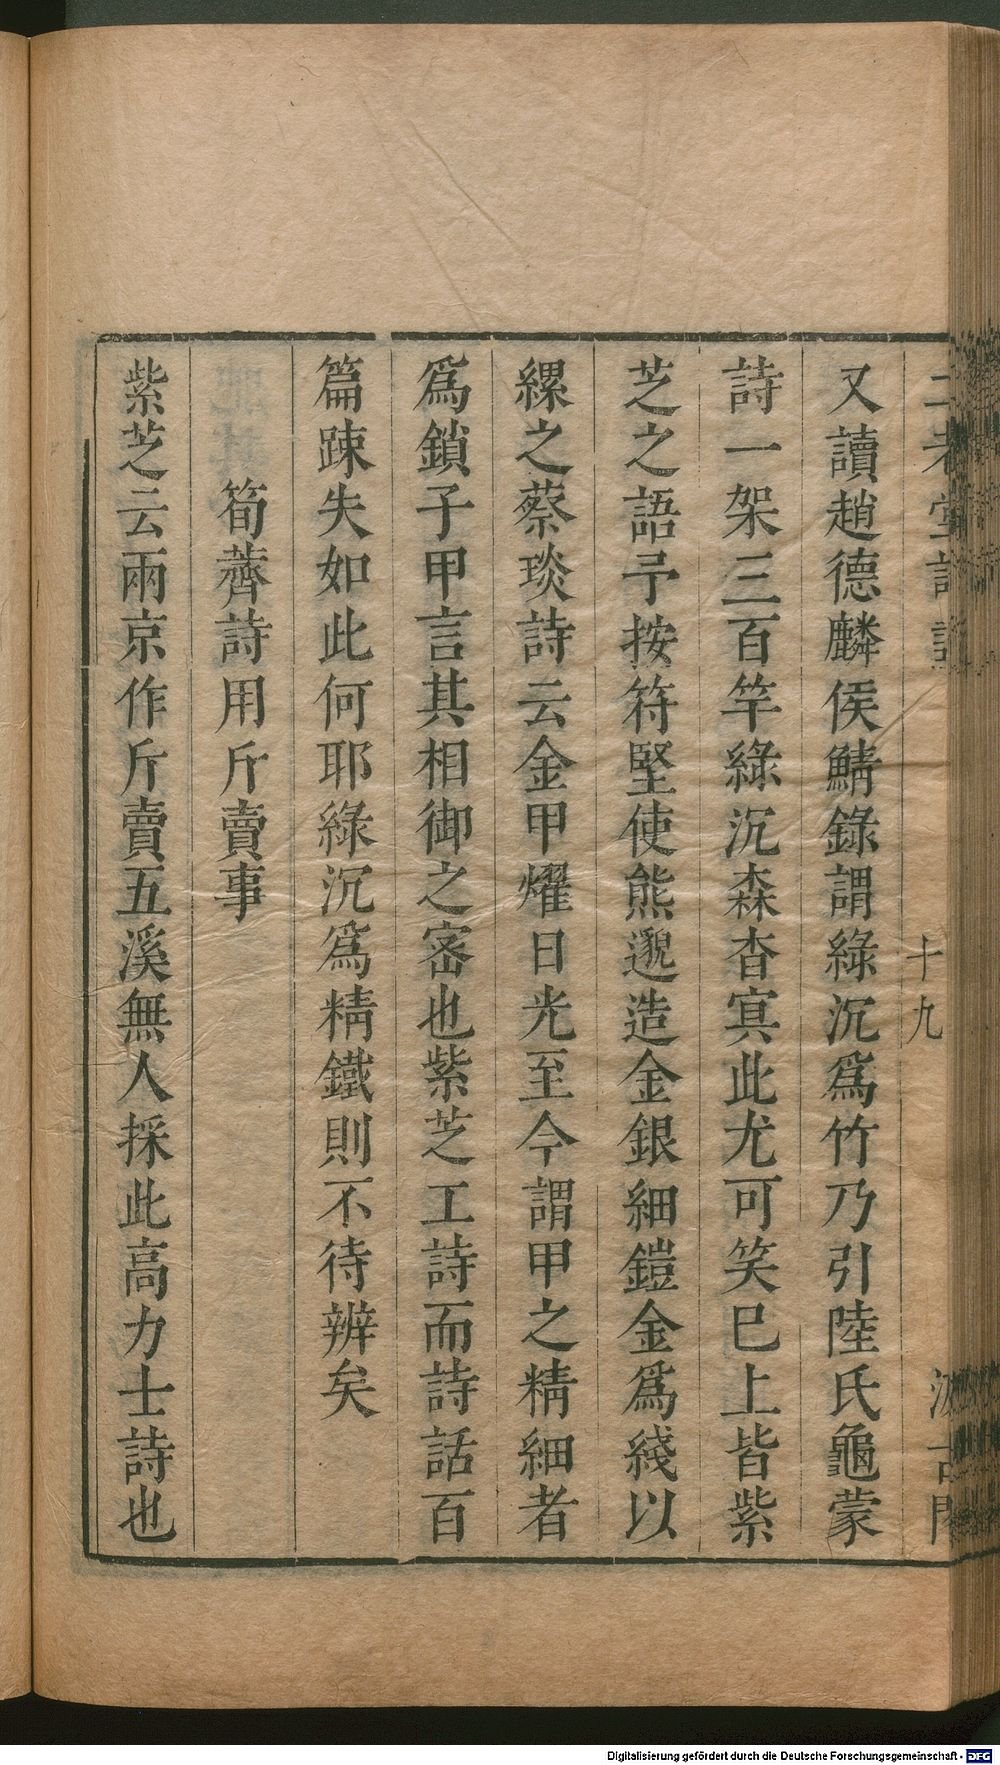 二老堂詩話
十九
汲古閣
又讀趙德麟侯鯖錄謂綠沉爲竹乃引陸氏龜蒙
詩一架三百竿綠沉森杳冥此尤可笑巳上皆紫
芝之語予按符堅使熊邈造金銀細鎧金爲綫以
縲之蔡琰詩云金甲燿日光至今謂甲之精細者
爲鎖子甲言其相御之密也紫芝工詩而詩話百
篇踈失如此何耶綠沉爲精鐵則不待辨矣
筍薺詩用斤賣事
紫芝云兩京作斤賣五溪無人採此高力士詩也
Digitalisierung gefördert durch die Deutsche Forschungsgemeinschaft - DFG